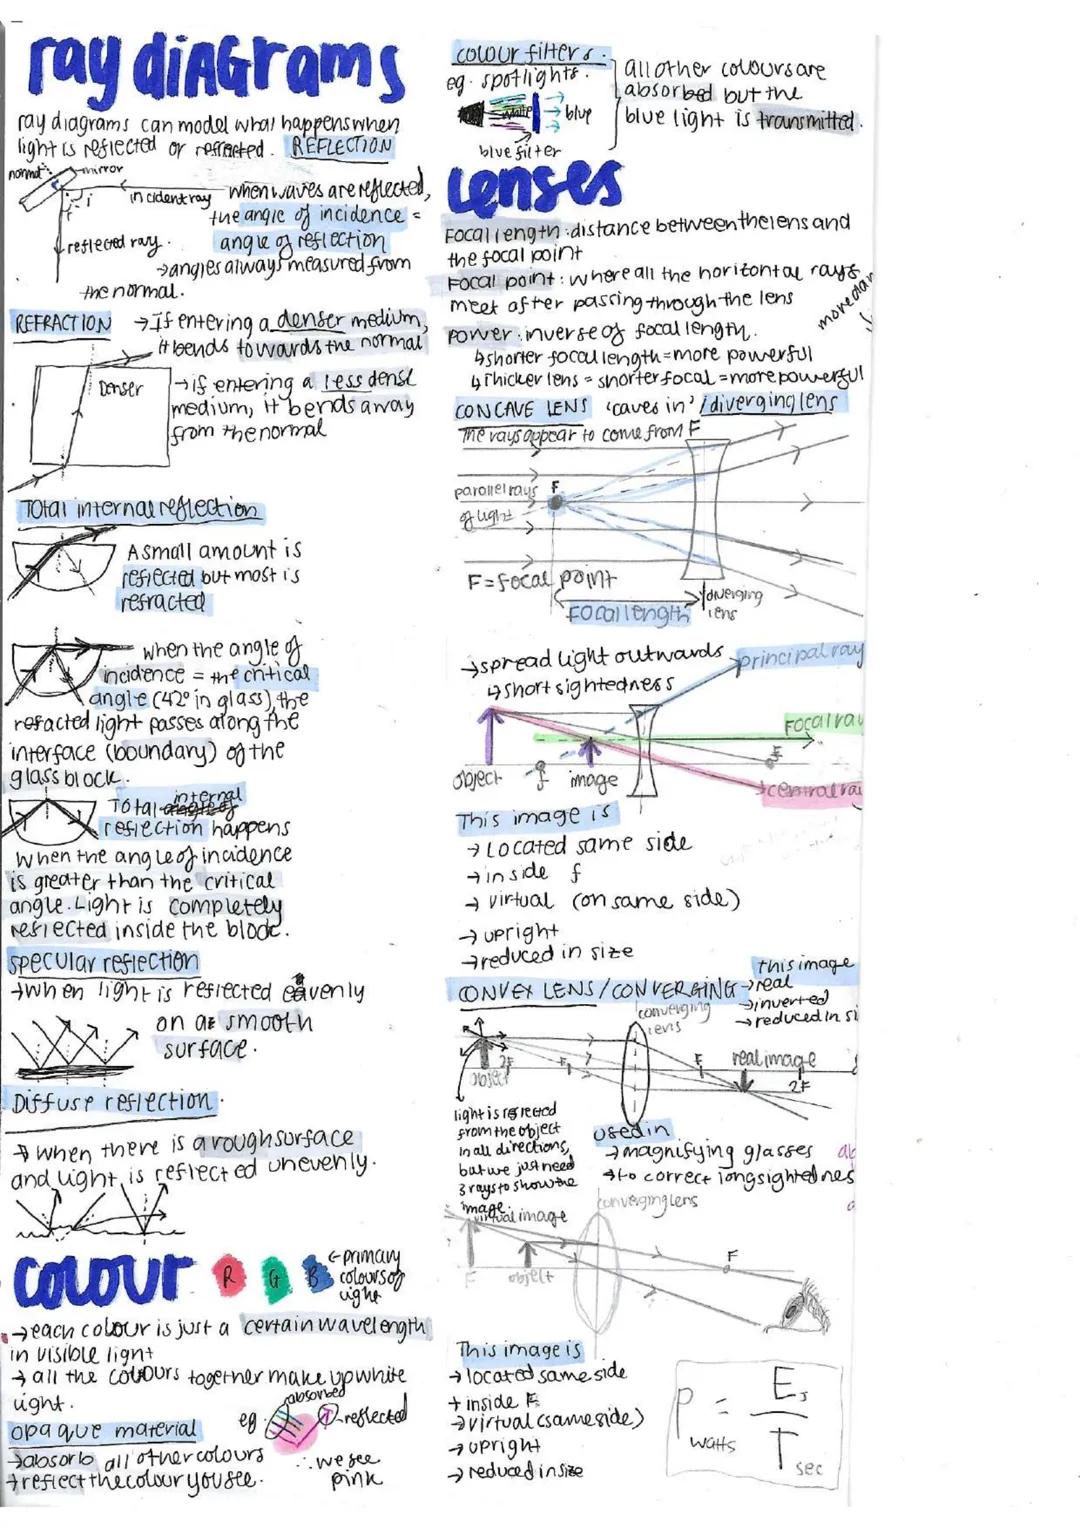 ray diAGrams
ray diagrams can model what happens when
light is reflected or refracted. REFLECTION
normal
mirror
incident ray
i
r
reflected ray.
when waves are reflected,
the angle of incidence =
angle of reflection
→angles always measured from
the normal.
REFRACTION
→If entering a denser medium,
it bends towards the normal
Denser
→if entering a less dense
medium, it bends away
from the normal
Total internal reflection
A small amount is
reflected but most is
refracted
when the angle of
incidence = the critical
angle (42° in glass), the
refacted light passes along the
interface (boundary) of the
glass block.
Total internal
reflection happens
when the angle of incidence
is greater than the critical
angle. Light is completely
reflected inside the block.
specular reflection
→when light is reflected evenly
on a smooth
surface.
Diffuse reflection.
→ when there is a rough surface
and light is reflected unevenly.
colour
R G B
←primary
colours of
light
→each colour is just a certain wavelength
in visible light
→ all the colours together make up white
light.
opaque material
→absorb all other colours
→reflect the colour you see.
eg.
absorbed
reflected
∴ we see
pink
colour filters.
eg. spotlights.
white
blue
blue filter
all other colours are
absorbed but the
blue light is transmitted.
Lenses
Focal length: distance between the lens and
the focal point
Focal point: where all the horizontal rays
meet after passing through the lens
power: inverse of focal length.
↳shorter focal length=more powerful
↳Thicker lens = shorter focal = more powerful
CONCAVE LENS 'caves in' / diverging lens
The rays appear to come from F
parallel rays
of light
F
F=focal point
Focal length
diverging
lens
→spread light outwards
↳short sightedness
principal ray
Focal ray
object
f
image
F
central ra
This image is
→ Located same side
→inside f
→ virtual (on same side)
→ upright
→reduced in size
CONVEX LENS/CONVERGING
this image
→real
→inverted
→reduced in si
converging
lens
object
2F
F
F
real image
2F
light is reflected
from the object
in all directions,
but we just need
3 rays to show the
image.
Used in
→magnifying glasses
→to correct longsightednes
virtual image
converging lens
F
object
F
This image is
→located same side
→inside F
→virtual (same side)
→upright
→ reduced in size
P = E J
watts T sec